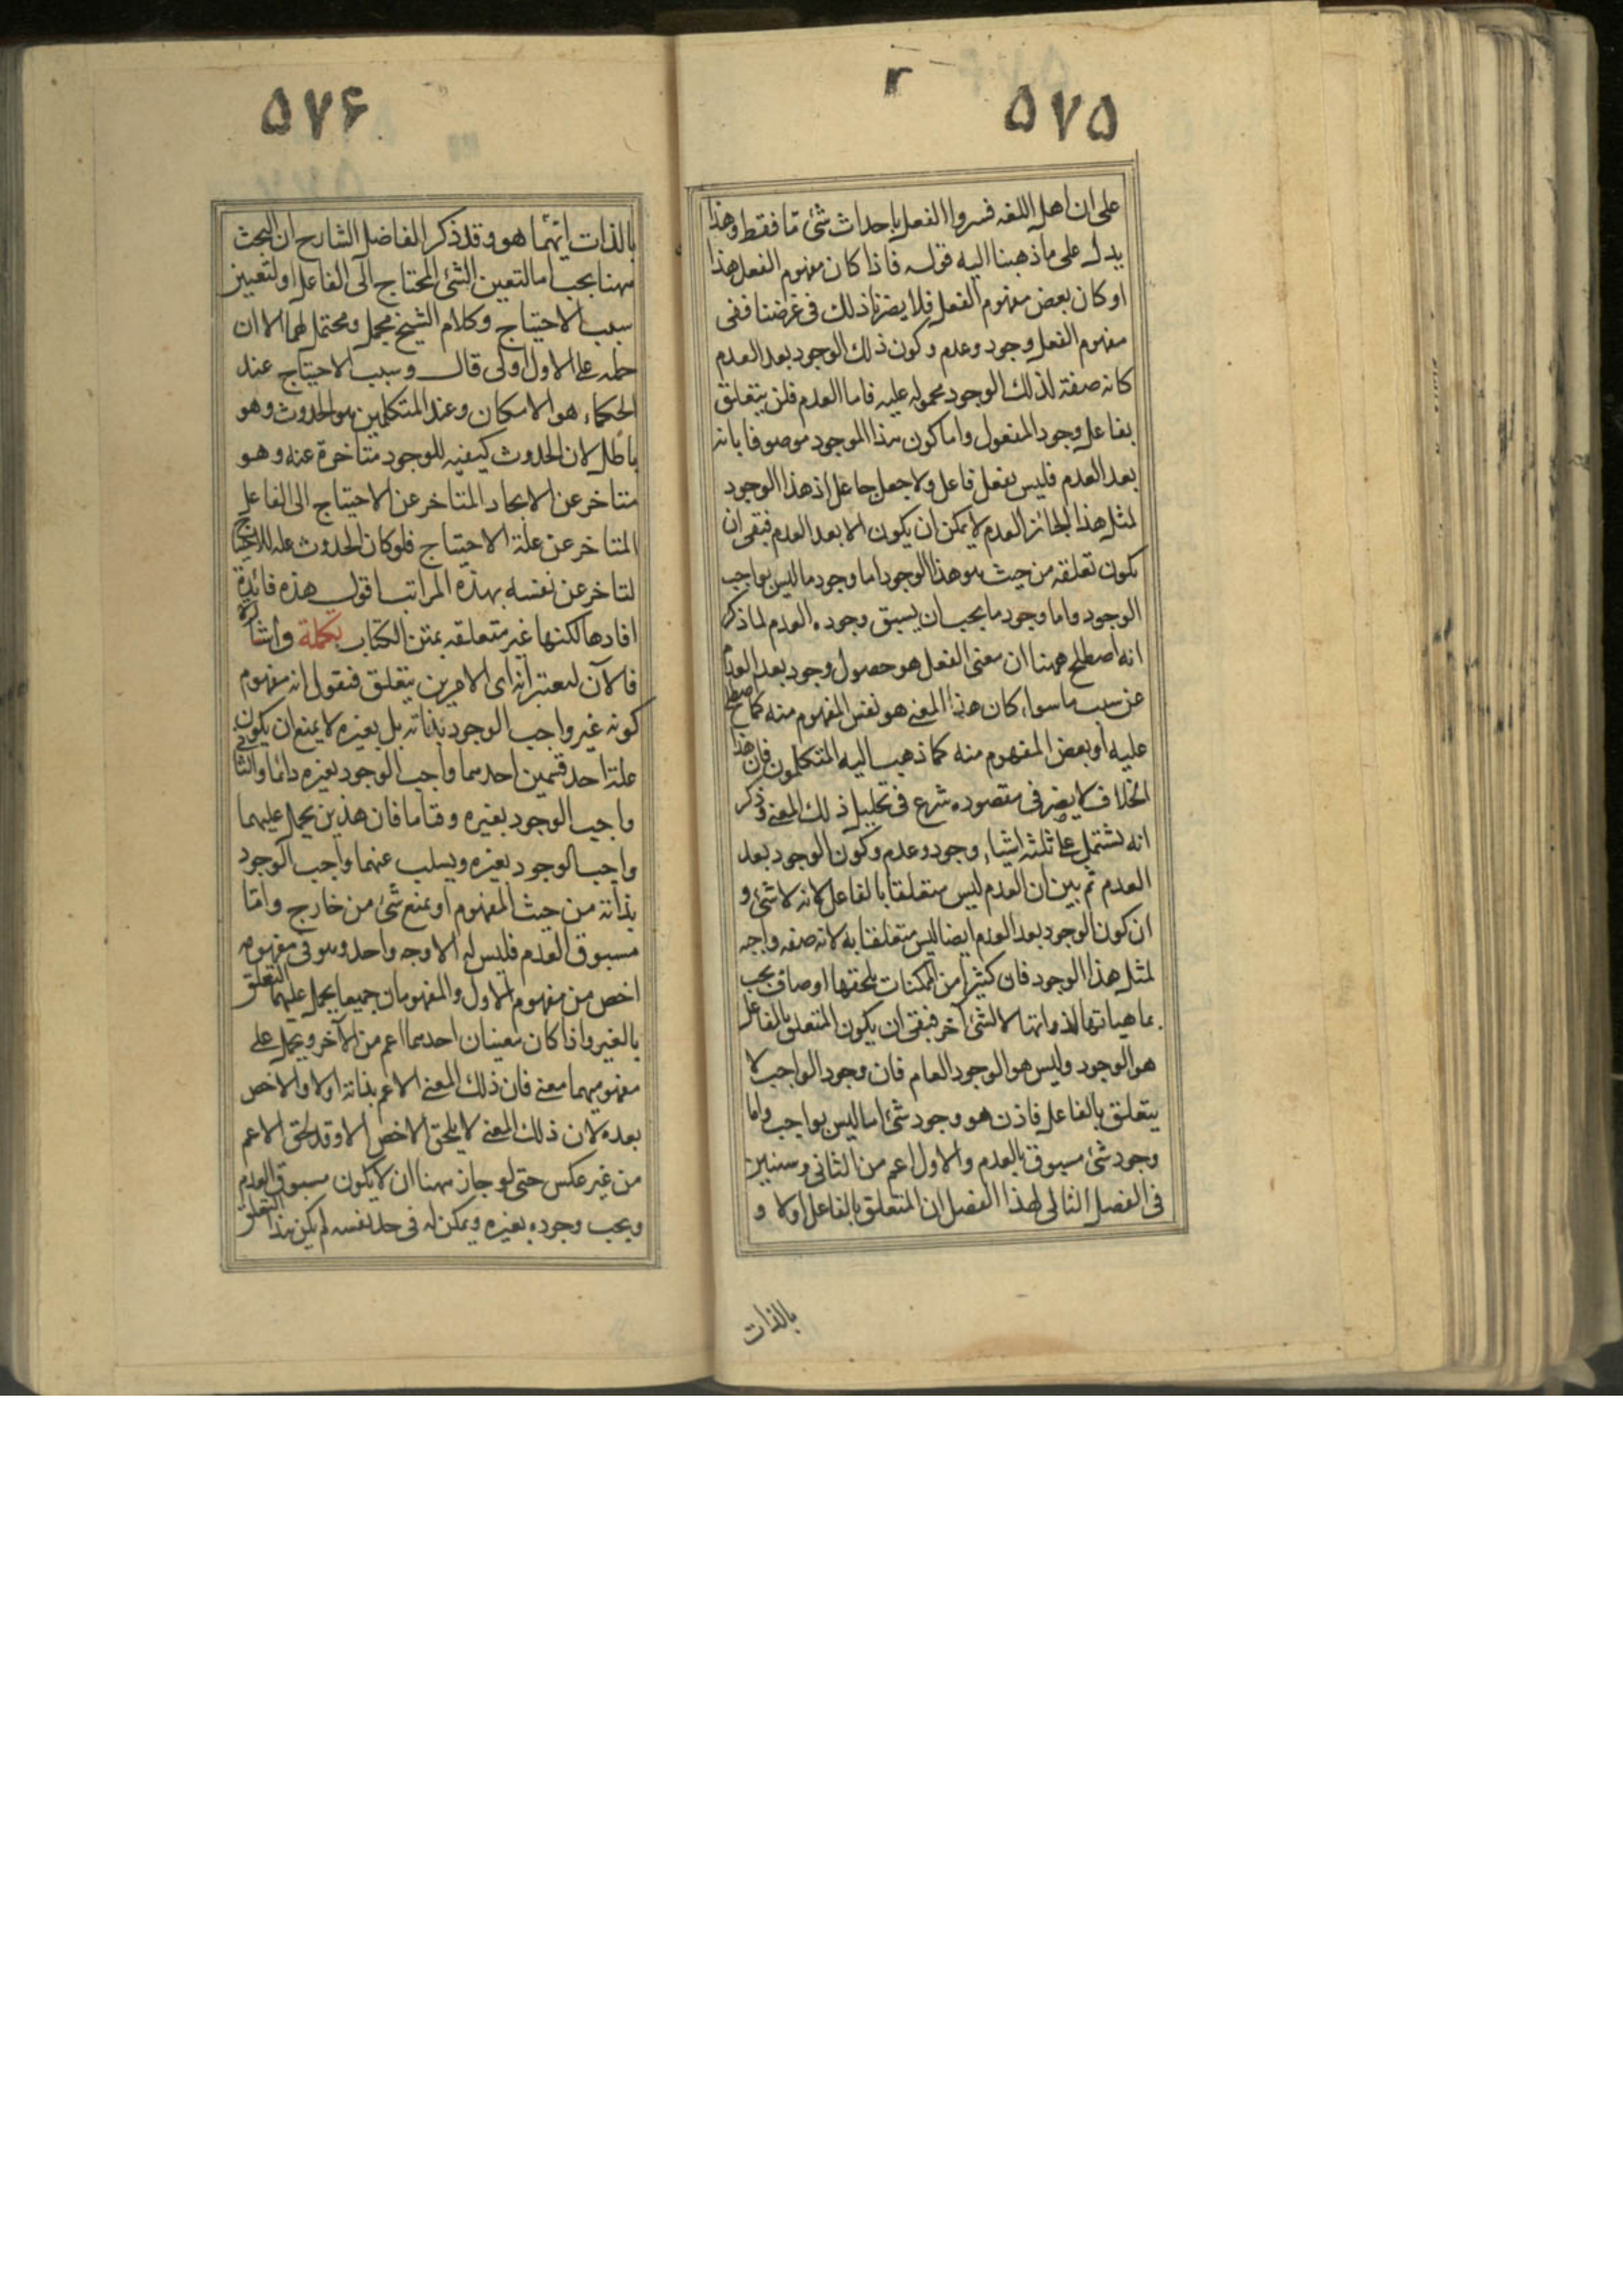 ۲
۵۷۵
على ان اهل اللغه فسروا الفعل باحداث شئ ما فقط وهذا
يدل على ما ذهبنا اليه قوله فاذا كان مفهوم الفعل هذا
او كان بعض مفهوم الفعل فلا يضرنا ذلك فى غرضنا ففى
مفهوم الفعل وجود وعدم وكون ذلك الوجود بعد العدم
كانه صفة لذلك الوجود محموله عليه فاما العدم فلن يتعلق
بفاعل وجود المفعول واما كون هذا الموجود موصوفا بانه
بعد العدم فليس بفعل فاعل ولا جعل جاعل اذ هذا الوجود
لمثل هذا الجائز العدم لا يمكن ان يكون الا بعد العدم فبقى ان
يكون تعلقه من حيث هو هذا الوجود اما وجود ما ليس بواجب
الوجود واما وجود ما يجب ان يسبق وجوده العدم لما ذكر
انه اصطلح ههنا ان معنى الفعل هو حصول وجود بعد العدم
عن سبب ما سواء كان هذا المعنى هو نفس المفهوم منه كما اصطلح
عليه او بعض المفهوم منه كما ذهب اليه المتكلمون فان هذا
الخلاف لا يضر فى مقصوده شرع فى تحليل ذلك المعنى فذكر
انه يشتمل على ثلثة اشياء وجود وعدم وكون الوجود بعد
العدم ثم بين ان العدم ليس متعلقا بالفاعل لانه لا شئ و
ان كون الوجود بعد العدم ايضا ليس متعلقا به لانه صفه واجبه
لمثل هذا الوجود فان كثيرا من الممكنات يلحقها اوصاف يجب
بماهياتها لذواتها لا لشئ آخر فبقى ان يكون المتعلق بالفاعل
هو الوجود وليس هو الوجود العام فان وجود الواجب لا
يتعلق بالفاعل فاذن هو وجود شئ اما ليس بواجب واما
وجود شئ مسبوق بالعدم والاول اعم من الثانى وسنبين
فى الفصل الثالى لهذا الفصل ان المتعلق بالفاعل اولا و
بالذات
۵۷۶
بالذات ايهما هو وقد ذكر الفاضل الشارح ان البحث
ههنا يجب اما لتعين الشئ المحتاج الى الفاعل او لتعيين
سبب الاحتياج وكلام الشيخ مجمل ومحتمل لهما الا ان
حمله على الاول اولى قال وسبب الاحتياج عند
الحكماء هو الامكان وعند المتكلمين هو الحدوث وهو
باطل لان الحدوث كيفيه للوجود متاخرة عنه وهو
متاخر عن الايجاد المتاخر عن الاحتياج الى الفاعل
المتاخر عن علة الاحتياج فلو كان الحدوث علة للاحتياج
لتاخر عن نفسه بهذه المراتب اقول هذه فائدة
افادها لكنها غير متعلقه بمتن الكتاب تكملة واشارة
فالآن لنعتبر انه اى الامرين يتعلق فنقول انه مفهوم
كونه غير واجب الوجود بذاته بل بغيره لا يمنع ان يكون
علة احد قسمين احدهما واجب الوجود بغيره دائما والثانى
واجب الوجود بغيره وقتا ما فان هذين يحمل عليهما
واجب الوجود بغيره ويسلب عنهما واجب الوجود
بذاته من حيث المفهوم او يمنع شئ من خارج واما
مسبوق العدم فليس له الا وجه واحد وهو فى مفهومه
اخص من مفهوم الاول والمفهومان جميعا يحمل عليهما التعلق
بالغير واذا كان معنيان احدهما اعم من الآخر ويحمل على
مفهوميهما معنى فان ذلك المعنى الاعم بذاته اولا والاخص
بعده لان ذلك المعنى لا يلحق الاخص الا وقد لحق الاعم
من غير عكس حتى لو جاز ههنا ان لا يكون مسبوق العدم
ويجب وجوده بغيره ويمكن له فى حد نفسه لم يكن هذا التعلق